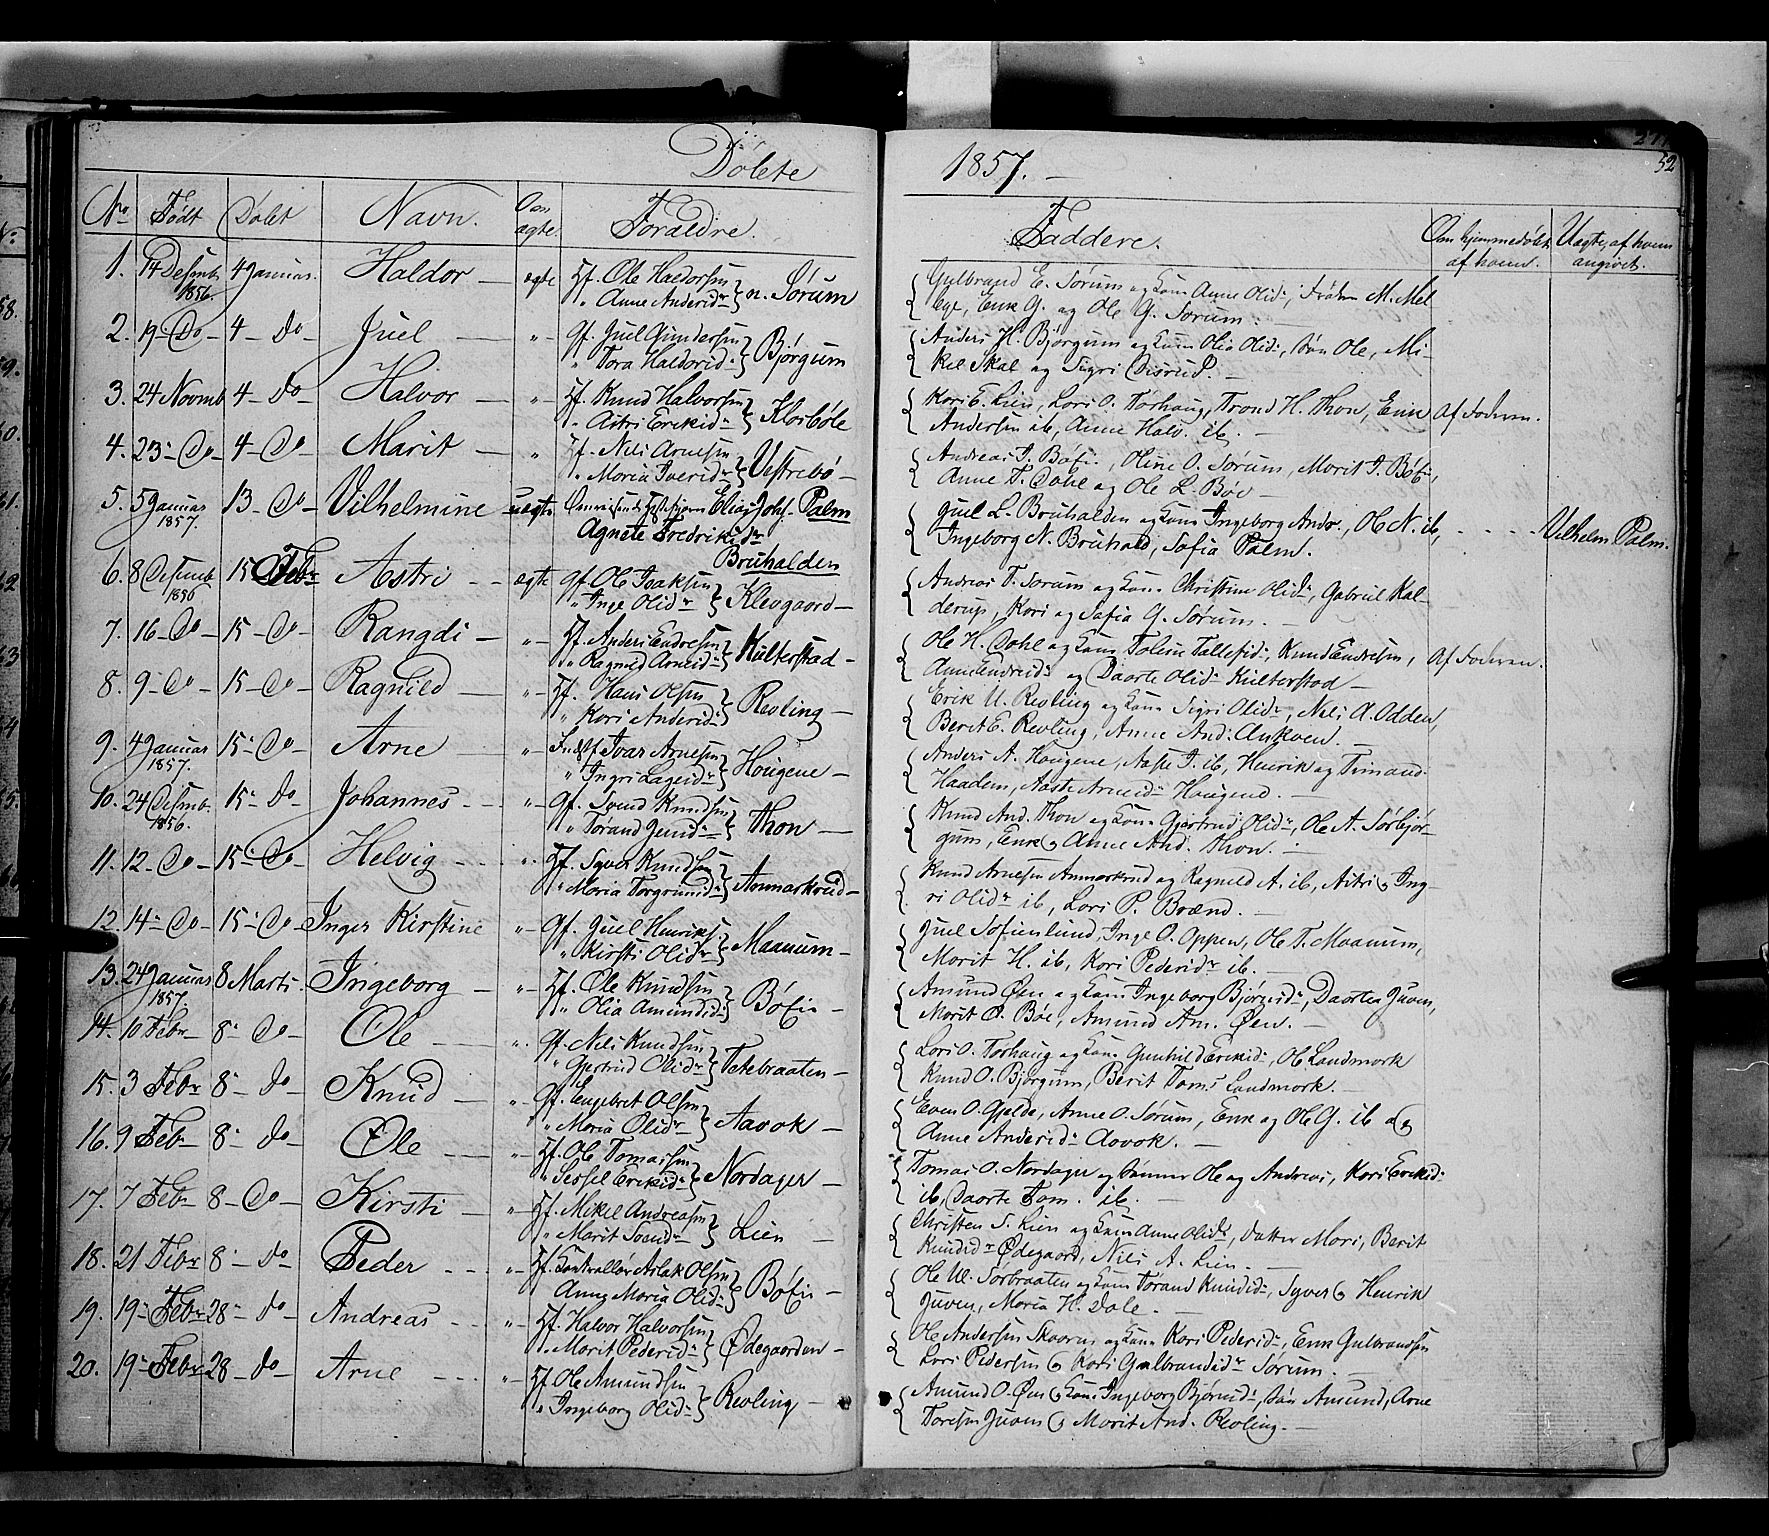 Döbte
1857. —
52
No Født Döbt Navn. Om ægte. Forældre.
Faddere. Om hjemmedöbt af hvem. Uægte, af hvem angivet.
1. 14 Desmb. 1856. 4 Januar. Haldor ægte Hf. Ole Haldorsen
" Anne Andersdr } n. Sörum
Gulbrand E. Sörum og Kone Anne Olsdr,
Erik G. og Ole G. Sörum.
2. 19 – Do 4 – do Juel — " Gf. Juel Gundersen
" Tora Haldorsdr } Björgum
Anders H. Björgum og Kone Olia Olsdr, Sön Ole, Mi-
kel Skal og Sigri
3. 24 Novmb 4 – do Halvor — " Hf. Knud Halvorsen
" Astri Eriksdr } Klosböle
Kari E. Lien, Lars O. Torhaug, Trond H. Thon, Erik
Andersen ib, Anne Halv. ib. — Af Faderen.
4. 23 – Do 4 – Do Marit — " Hf. Nils Arnesen
" Maria Iversdr } Vestrebö —
Andreas I. Böfis, Oline O. Sörum, Marit I. Böfis,
Anne T. Dahl og Ole L. Böe —
5. 5 Januar 1857. 13 – Do Vilhelmine uægte Elias Johs. Palm
Agnete Fredriksdr
Bruhalden
Juel L. Bruhalden og Kone Ingeborg Andr., Ole N. ib,
Ingeborg N. Bruhald, Sofia Palm. Vilhelm Palm.
6. 8 Desmb 1856 15 Febr Astri — ægte Gf. Ole Isaksen
" Inge Olsdr } Klevgaard —
Andreas T. Sörum og Kone Christine Olsdr, Gabriel Hal-
derup, Kari og Sofia G. Sörum.
7. 16 – Do – 15 – Do – Rangdi — " Hf. Anders Endresen
" Ragnild Arnesdr } Hulterstad —
Ole H. Dahl og Kone Tallefsdr, Knud Endresen,
Anne Endresdr og Daarte Olsdr Hulterstad — Af Faderen.
8. 9 – Do – 15 – Do – Ragnild — " Hf. Hans Olsen
" Kari Andersdr } Revling —
Erik U. Revling og Kone Sigri Olsdr, Nils A. Odden,
Berit E. Revling, Anne And. Ankven. —
9. 4 Januar 1857. 15 – Do – Arne — " Indst Ivar Arnesen
" Ingri Lagesdr } Hougene —
Anders A. Hougene, Aase I. ib, Henrik og Timand
Haadem, Aaste Arnesdr Hougene. —
10. 24 Desmb. 1856. 15 – do Johannes — " Gf. Svend Knudsen
" Törand Juulsdr } Thon —
Knud And. Thon og Kone Gjertrud Olsdr, Ole A. Sörbjör-
gum, Erik & Anne And. Thon. —
11. 12 – Do – 15 – Do – Helvig — " Hf. Syver Knudsen
" Maria Torgrimsdr } Anmarkrud —
Knud Arnesen Anmarkrud og Ragnild A. ib, Astri & Ing-
ri Olsdr ib, Lars P. Brænd. —
12. 14 – Do – 15 – Do – Inger Kirstine " Gf. Juel Henriks.
" Kirsti Olsdr } Maanum —
Juel Sofienlund, Inge O. Oppen, Ole T. Maanum,
Marit H. ib, Kari Pedersdr ib. —
13. 24 Januar 1857. 8 Marts. Ingeborg — " Hf. Ole Knudsen
" Olia Amundsdr } Böfis —
Amund Öen og Kone Ingeborg Björnsdr, Daartea Juven,
Marit O. Böe, Amund Am. Öen. —
14. 10 Febr 8 – Do – Ole — " Gf. Nils Knudsen
" Gjertrud Olsdr } Tetebraaten —
Lars O. Torhaug og Kone Gunhild Eriksdr, Ole Landmark
Knud O. Björgum, Berit Toms. Landmark. —
15. 3 Febr 8 – do Knud — " Gf. Engebret Olsen
" Maria Olsdr } Aavok —
Even O. Gjelde, Anne O. Sörum, Erik og Ole G. ib og
Anne Andersdr Aavok. —
16. 9 Febr 8 – do – Ole — " Hf. Ole Tomassen
" Sessel Eriksdr } Nordager —
Tomas O. Nordager og Sönner Ole og Andreas, Kari Eriksdr
ib, Daarte Tom. ib. —
17. 7 Febr 8 – Do – Kirsti — " Hf. Mikel Andreasen
" Marit Svendsdr } Lien —
Christen S. Lien og Kone Anne Olsdr, datter Mari, Berit
Knudsdr Ödegaard, Nils A. Lien. —
18. 21 Febr 8 – do – Peder — " Hf. Kontrollör Aslak Olsen
Anne Maria Olsdr } Böfis —
Ole Ul. Sörbraaten og Kone Törand Knudsdr, Syver & Henrik
Juven, Maria H. Dale. —
19. 19 – Febr 28 – do Andreas — " Hf. Halvor Halvorsen
" Marit Pedersdr } Ödegaarden —
Ole Andersen Skaarus og Kone Kari Pedersdr, Erik Gulbrandsen
Lars Pedersen & Kari Gulbrandsdr Sörum. —
20. 19 – Febr 28 – do – Arne — " Hf. Ole Amundsen
" Ingeborg Olsdr } Revling —
Amund O. Öen & Kone Ingeborg Björnsdr, Sön Amund, Arne
Toresen Juven & Marit And. Revling. —